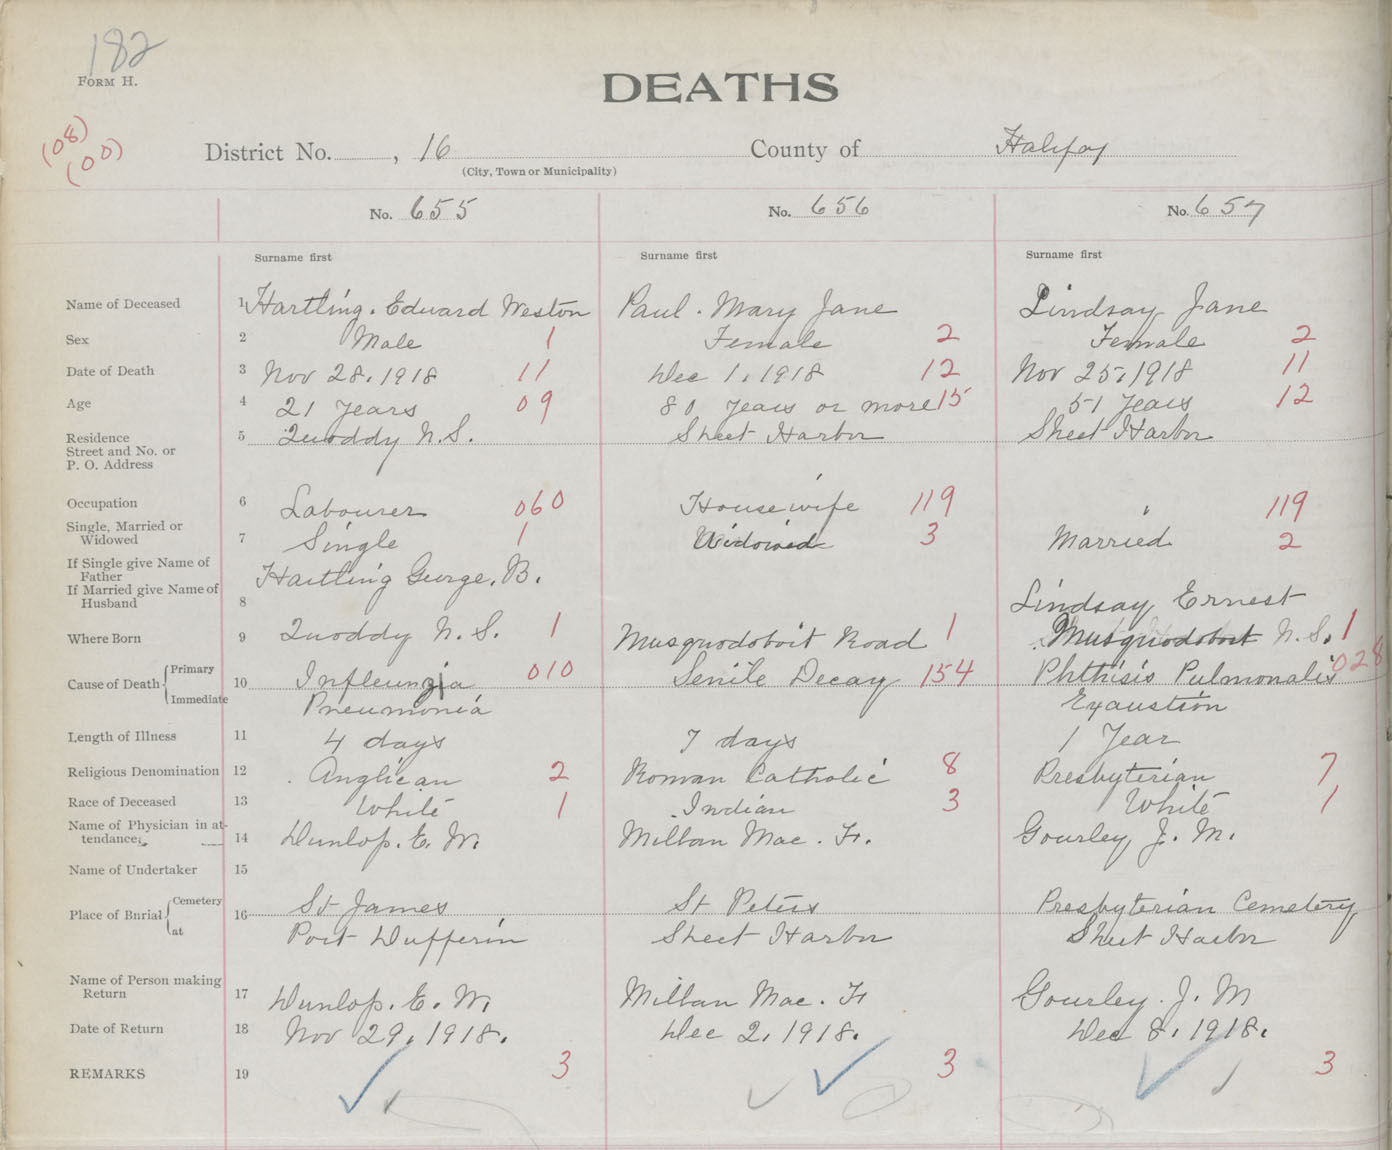 182
FORM H.
DEATHS
(08)
(00)
District No. , 16 County of Halifax
(City, Town or Municipality)
No. 655 No. 656 No. 657
Surname first Surname first Surname first
Name of Deceased 1 Hartling. Edward Weston Paul. Mary Jane Lindsay Jane
Sex 2 Male 1 Female 2 Female 2
Date of Death 3 Nov 28, 1918 11 Dec 1, 1918 12 Nov 25, 1918 11
Age 4 21 Years 09 80 years or more 15 51 Years 12
Residence
Street and No. or
P. O. Address 5 Quoddy N.S. Sheet Harbor Sheet Harbor
Occupation 6 Labourer 060 Housewife 119 119
Single, Married or
Widowed 7 Single 1 Widowed 3 Married 2
If Single give Name of
Father
If Married give Name of
Husband 8 Hartling George. B. Lindsay Ernest
Where Born 9 Quoddy N.S. 1 Musquodoboit Road 1 Musquodoboit N.S. 1
Cause of Death Primary 10 Infleunzia 010 Senile Decay 154 Phthisis Pulmonalis 028
Immediate Pneumonia Exaustion
Length of Illness 11 4 days 7 days 1 Year
Religious Denomination 12 Anglican 2 Roman Catholic 8 Presbyterian 7
Race of Deceased 13 White 1 Indian 3 White 1
Name of Physician in at-
tendance 14 Dunlop. E. W. Millan Mac. F. Gourley, J. M.
Name of Undertaker 15
Place of Burial Cemetery 16 St James St Peters Presbyterian Cemetery
at Port Dufferin Sheet Harbor Sheet Harbor
Name of Person making
Return 17 Dunlop. E. W. Millan Mac. F Gourley. J. M
Date of Return 18 Nov 29, 1918. Dec 2, 1918. Dec 8, 1918.
REMARKS 19 3 3 3